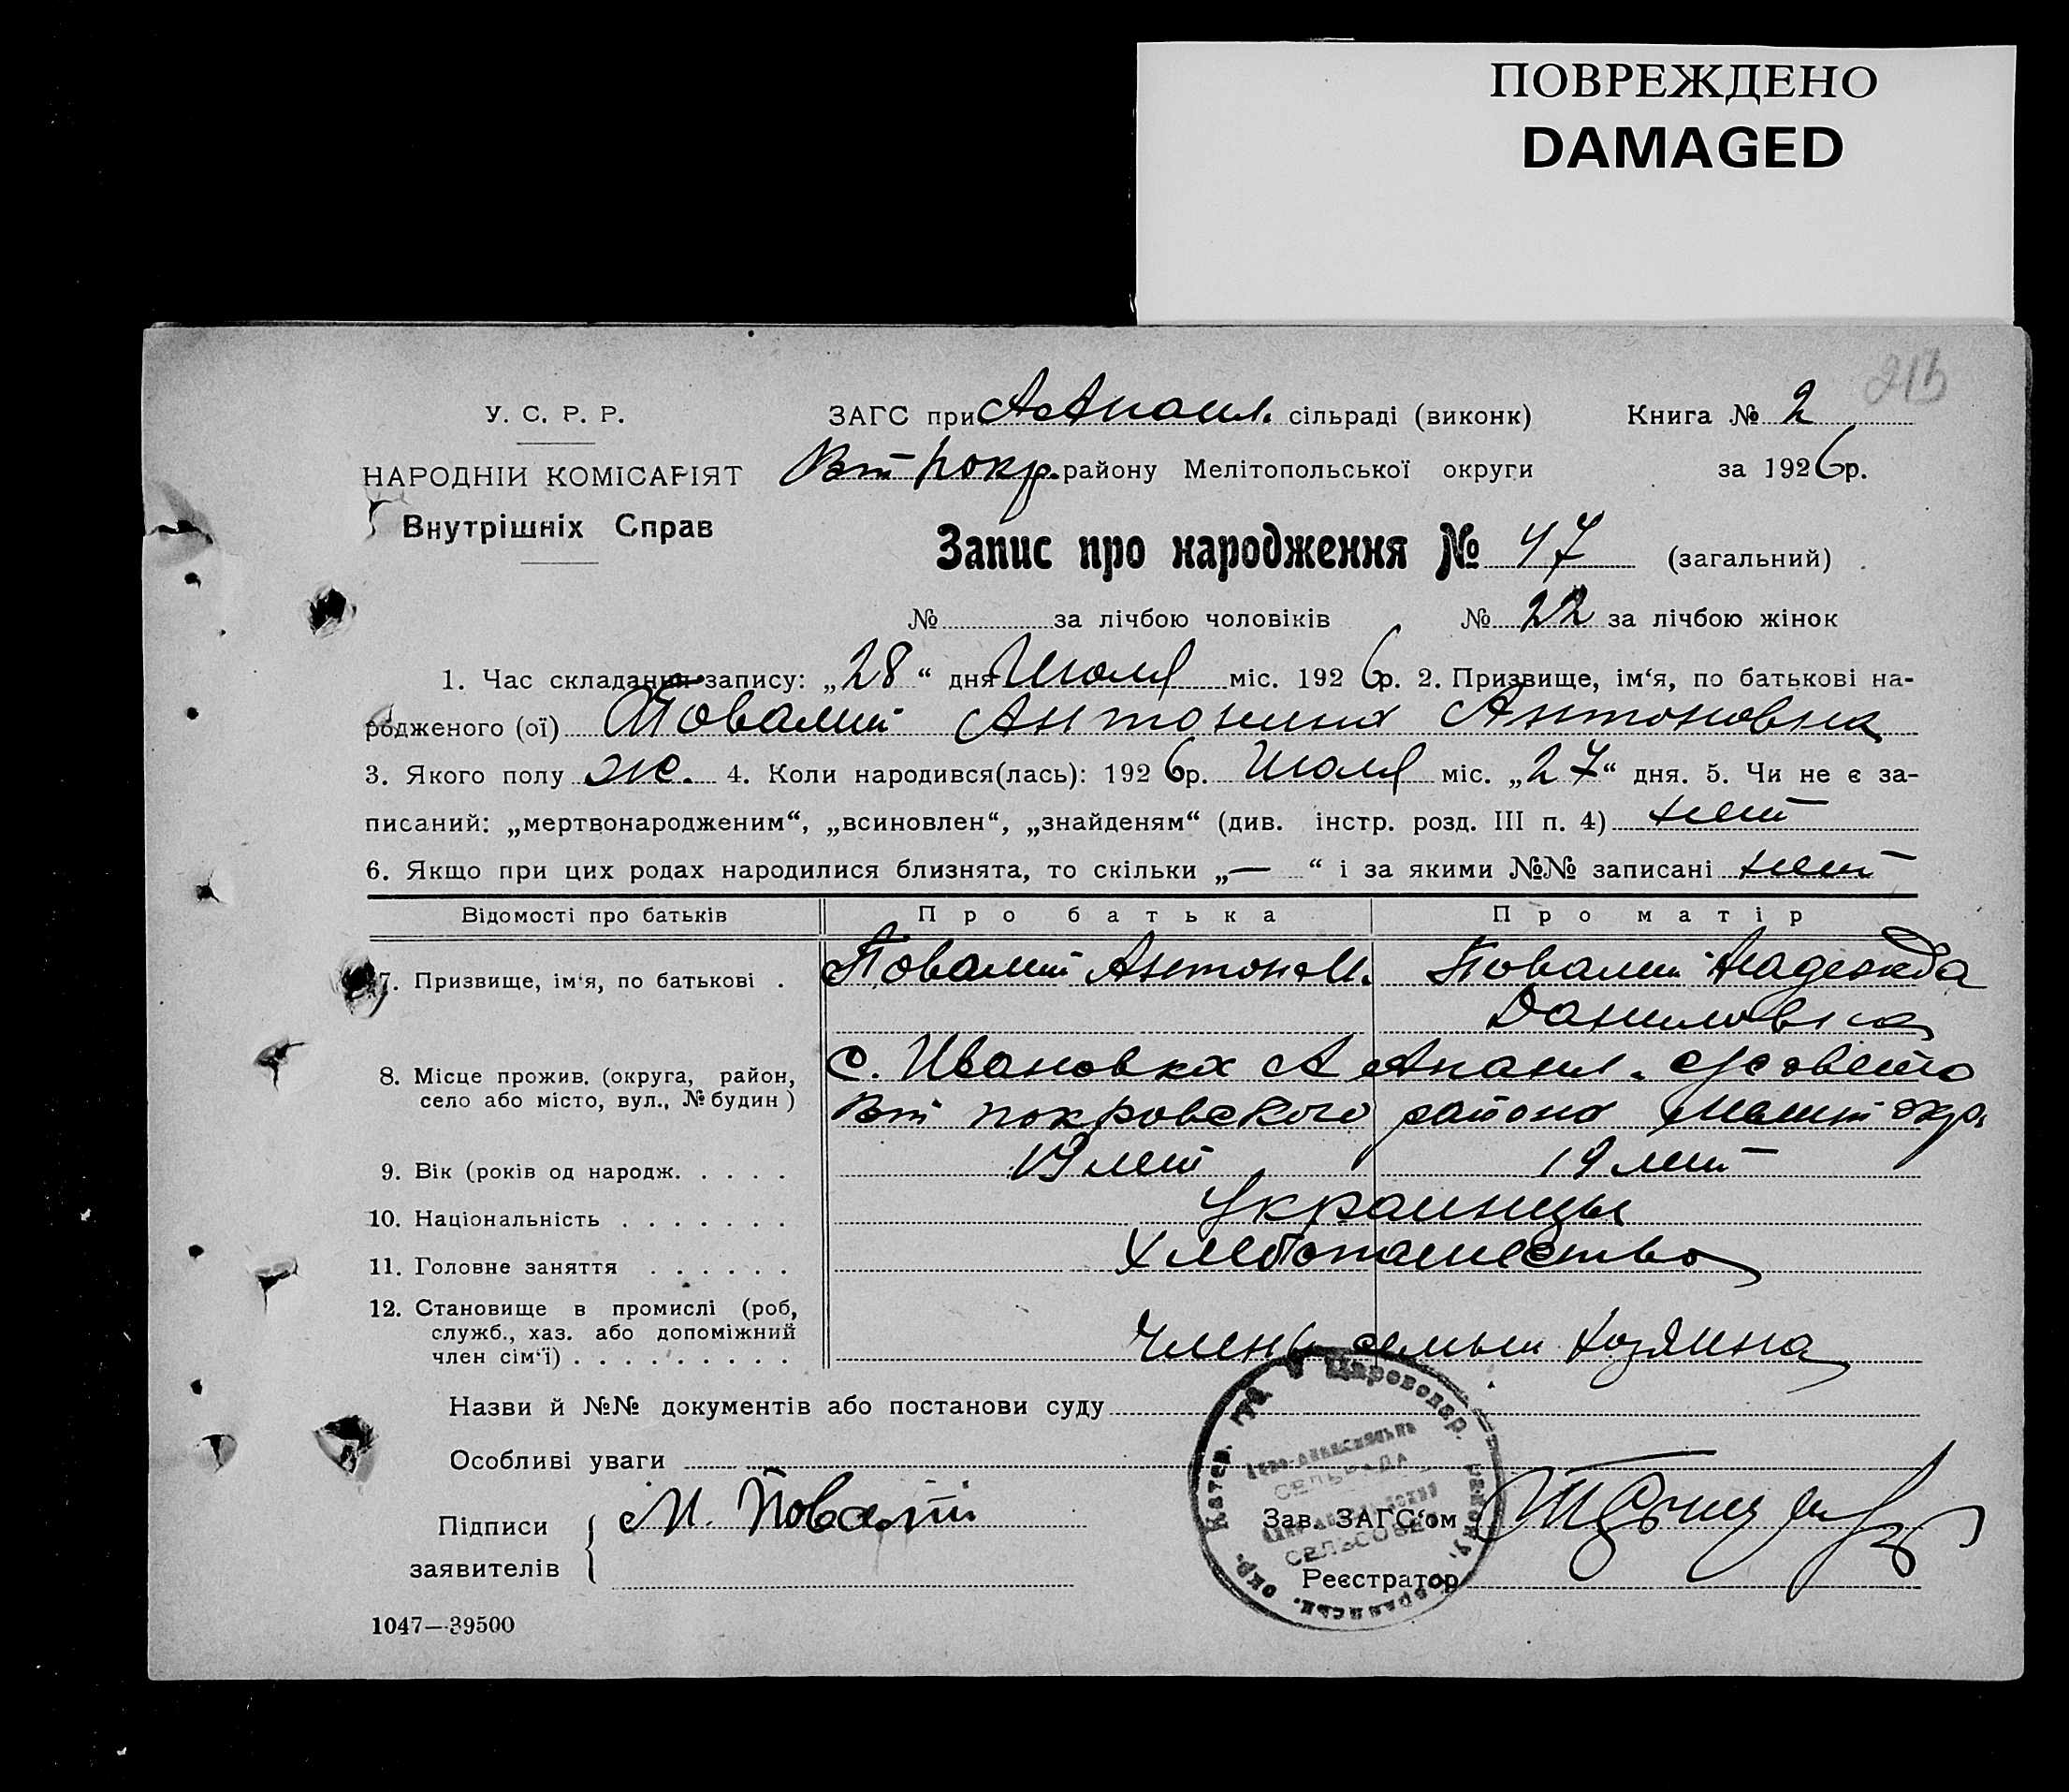 ПОВРЕЖДЕНО
DAMAGED
213
У. С. Р. Р.
ЗАГС при А-Апанл. сільраді (виконк) Книга № 2
НАРОДНІЙ КОМІСАРІЯТ Вт Покр. району Мелітопольської округи за 1926р.
Внутрішніх Справ
Запис про народження № 47 (загальний)
№ за лічбою чоловіків № 22 за лічбою жінок
1. Час складання запису: „28“ дня Июля міс. 1926р. 2. Призвище, ім‘я, по батькові на-
родженого (ої) Повалий Антонина Антоновна
3. Якого полу же. 4. Коли народився(лась): 1926р. Июля міс. „27“ дня. 5. Чи не є за-
писаний: „мертвонародженим“, „всиновлен“, „знайденям“ (див. інстр. розд. III п. 4) нет
6. Якщо при цих родах народилися близнята, то скільки „—“ і за якими №№ записані нет
Відомості про батьків Про батька Про матір
7. Призвище, ім‘я, по батькові . Повалий Антон И. Повалий Надежда
Даниловна
8. Місце прожив. (округа, район, с. Ивановка А Апанл. с/совета
село або місто, вул., № будин) Вт покровского района Мелит окр.
9. Вік (років од народж. . . . . 19 лет 19 лет
10. Національність . . . . . . . Украинцы
11. Головне заняття . . . . . . Хлебопашество
12. Становище в промислі (роб,
служб., хаз. або допоміжний
член сім‘ї) . . . . . . . . . Члены семьи хозяина
Назви й №№ документів або постанови суду
Особливі уваги
Підписи М. Повалий Зав. ЗАГС‘ом
заявителів Реєстратор
Катер. губ. Цароводар. района, окр.
СЕЛЬРАДА
СЕЛЬСОВЕТ
1047—39500